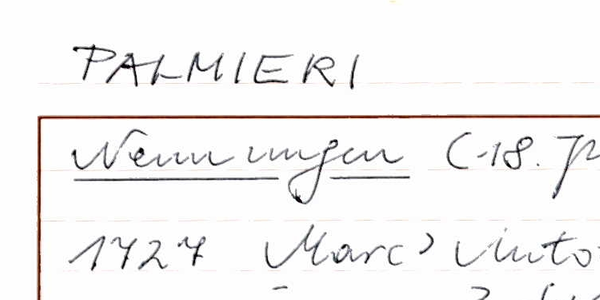 PALMIERI
Nennungen (-18. J
1727 Marc' Anto